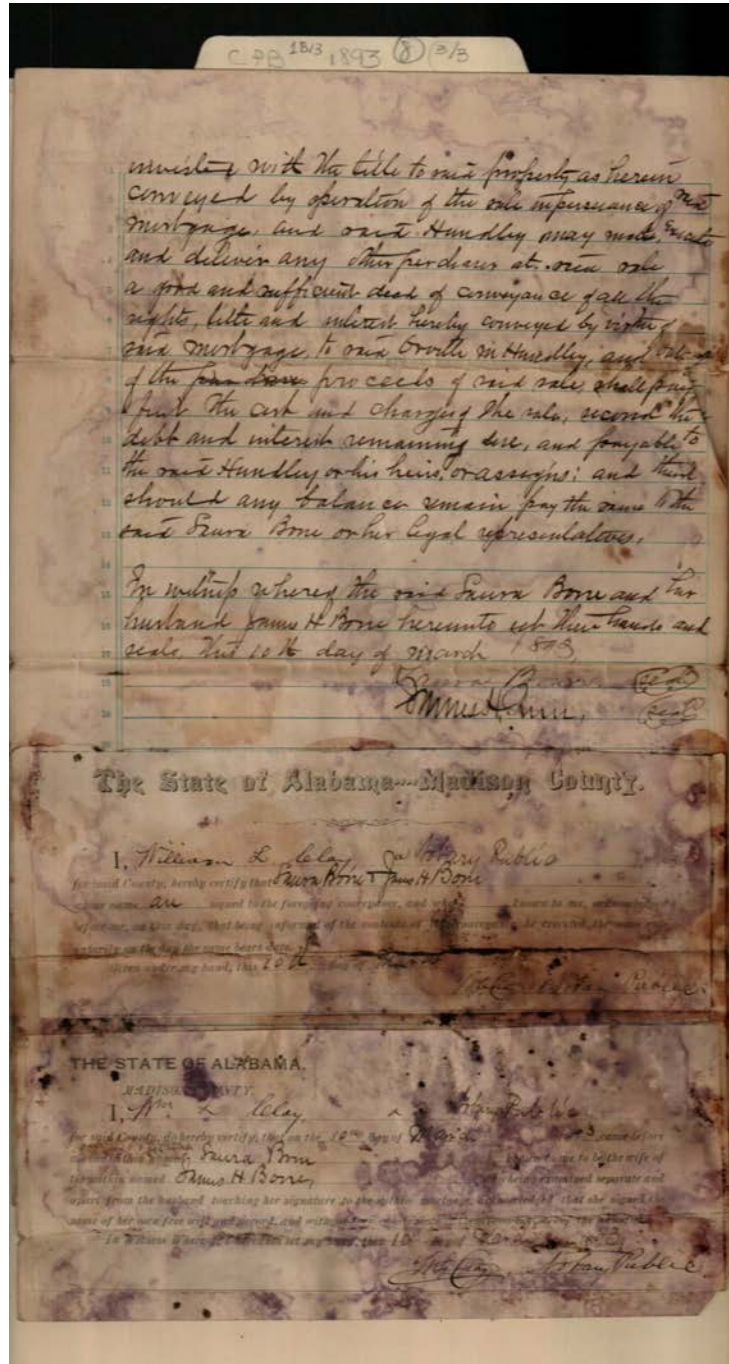 CPB 1B13 1893 (8) (3/3
with the title to said property as herein
conveyed by operation of the sale in persuance of said
mortgage, and said Hundley may make, execute
and deliver any other purchaser at said sale
a good and sufficient deed of conveyance of all the
rights, title and interest hereby conveyed by virtue of
said mortgage, to said Orville M Hundley, and out
of the proceeds of said sale, shall pay
first the cost and charges of the sale, second the
debt and interest remaining due, and payable to
the said Hundley or his heirs, or assigns; and third
should any balance remain pay the same to the
said Laura Bone or her legal representatives.
In witness whereof the said Laura Bone and her
husband James H Bone hereunto set their hands and
seals, this 10th day of March 1893,
Laura Bone (seal)
James H Bone, (seal)
The State of Alabama—Madison County.
I, William L Clay, a Notary Public
for said County, hereby certify that Laura Bone & James H Bone
whose name are signed to the foregoing conveyance, and who known to me, acknowledged
before me, on this day, that being informed of the contents of the conveyance, he executed the same
voluntarily on the day the same bears date.
Given under my hand, this 10th day of March
Notary Public.
THE STATE OF ALABAMA,
MADISON COUNTY.
I, Wm L Clay, a Notary Public
for said County, do hereby certify, that on the 10th day of March 1893, came before
me the within named Laura Bone known to me to be the wife of
the within named James H Bone, who being examined separate and
apart from the husband touching her signature to the within mortgage acknowledged that she signed the
same of her own free will and accord, and without
In Witness Whereof, I hereunto set my hand, this 10 day of March
Wm L Clay, Notary Public